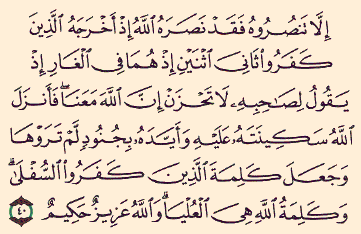 إِلَّا تَنصُرُوهُ فَقَدْ نَصَرَهُ ٱللَّهُ إِذْ أَخْرَجَهُ ٱلَّذِينَ
كَفَرُوا۟ ثَانِىَ ٱثْنَيْنِ إِذْ هُمَا فِى ٱلْغَارِ إِذْ
يَقُولُ لِصَـٰحِبِهِۦ لَا تَحْزَنْ إِنَّ ٱللَّهَ مَعَنَا ۖ فَأَنزَلَ
ٱللَّهُ سَكِينَتَهُۥ عَلَيْهِ وَأَيَّدَهُۥ بِجُنُودٍ لَّمْ تَرَوْهَا
وَجَعَلَ كَلِمَةَ ٱلَّذِينَ كَفَرُوا۟ ٱلسُّفْلَىٰ ۗ
وَكَلِمَةُ ٱللَّهِ هِىَ ٱلْعُلْيَا ۗ وَٱللَّهُ عَزِيزٌ حَكِيمٌ ٤٠